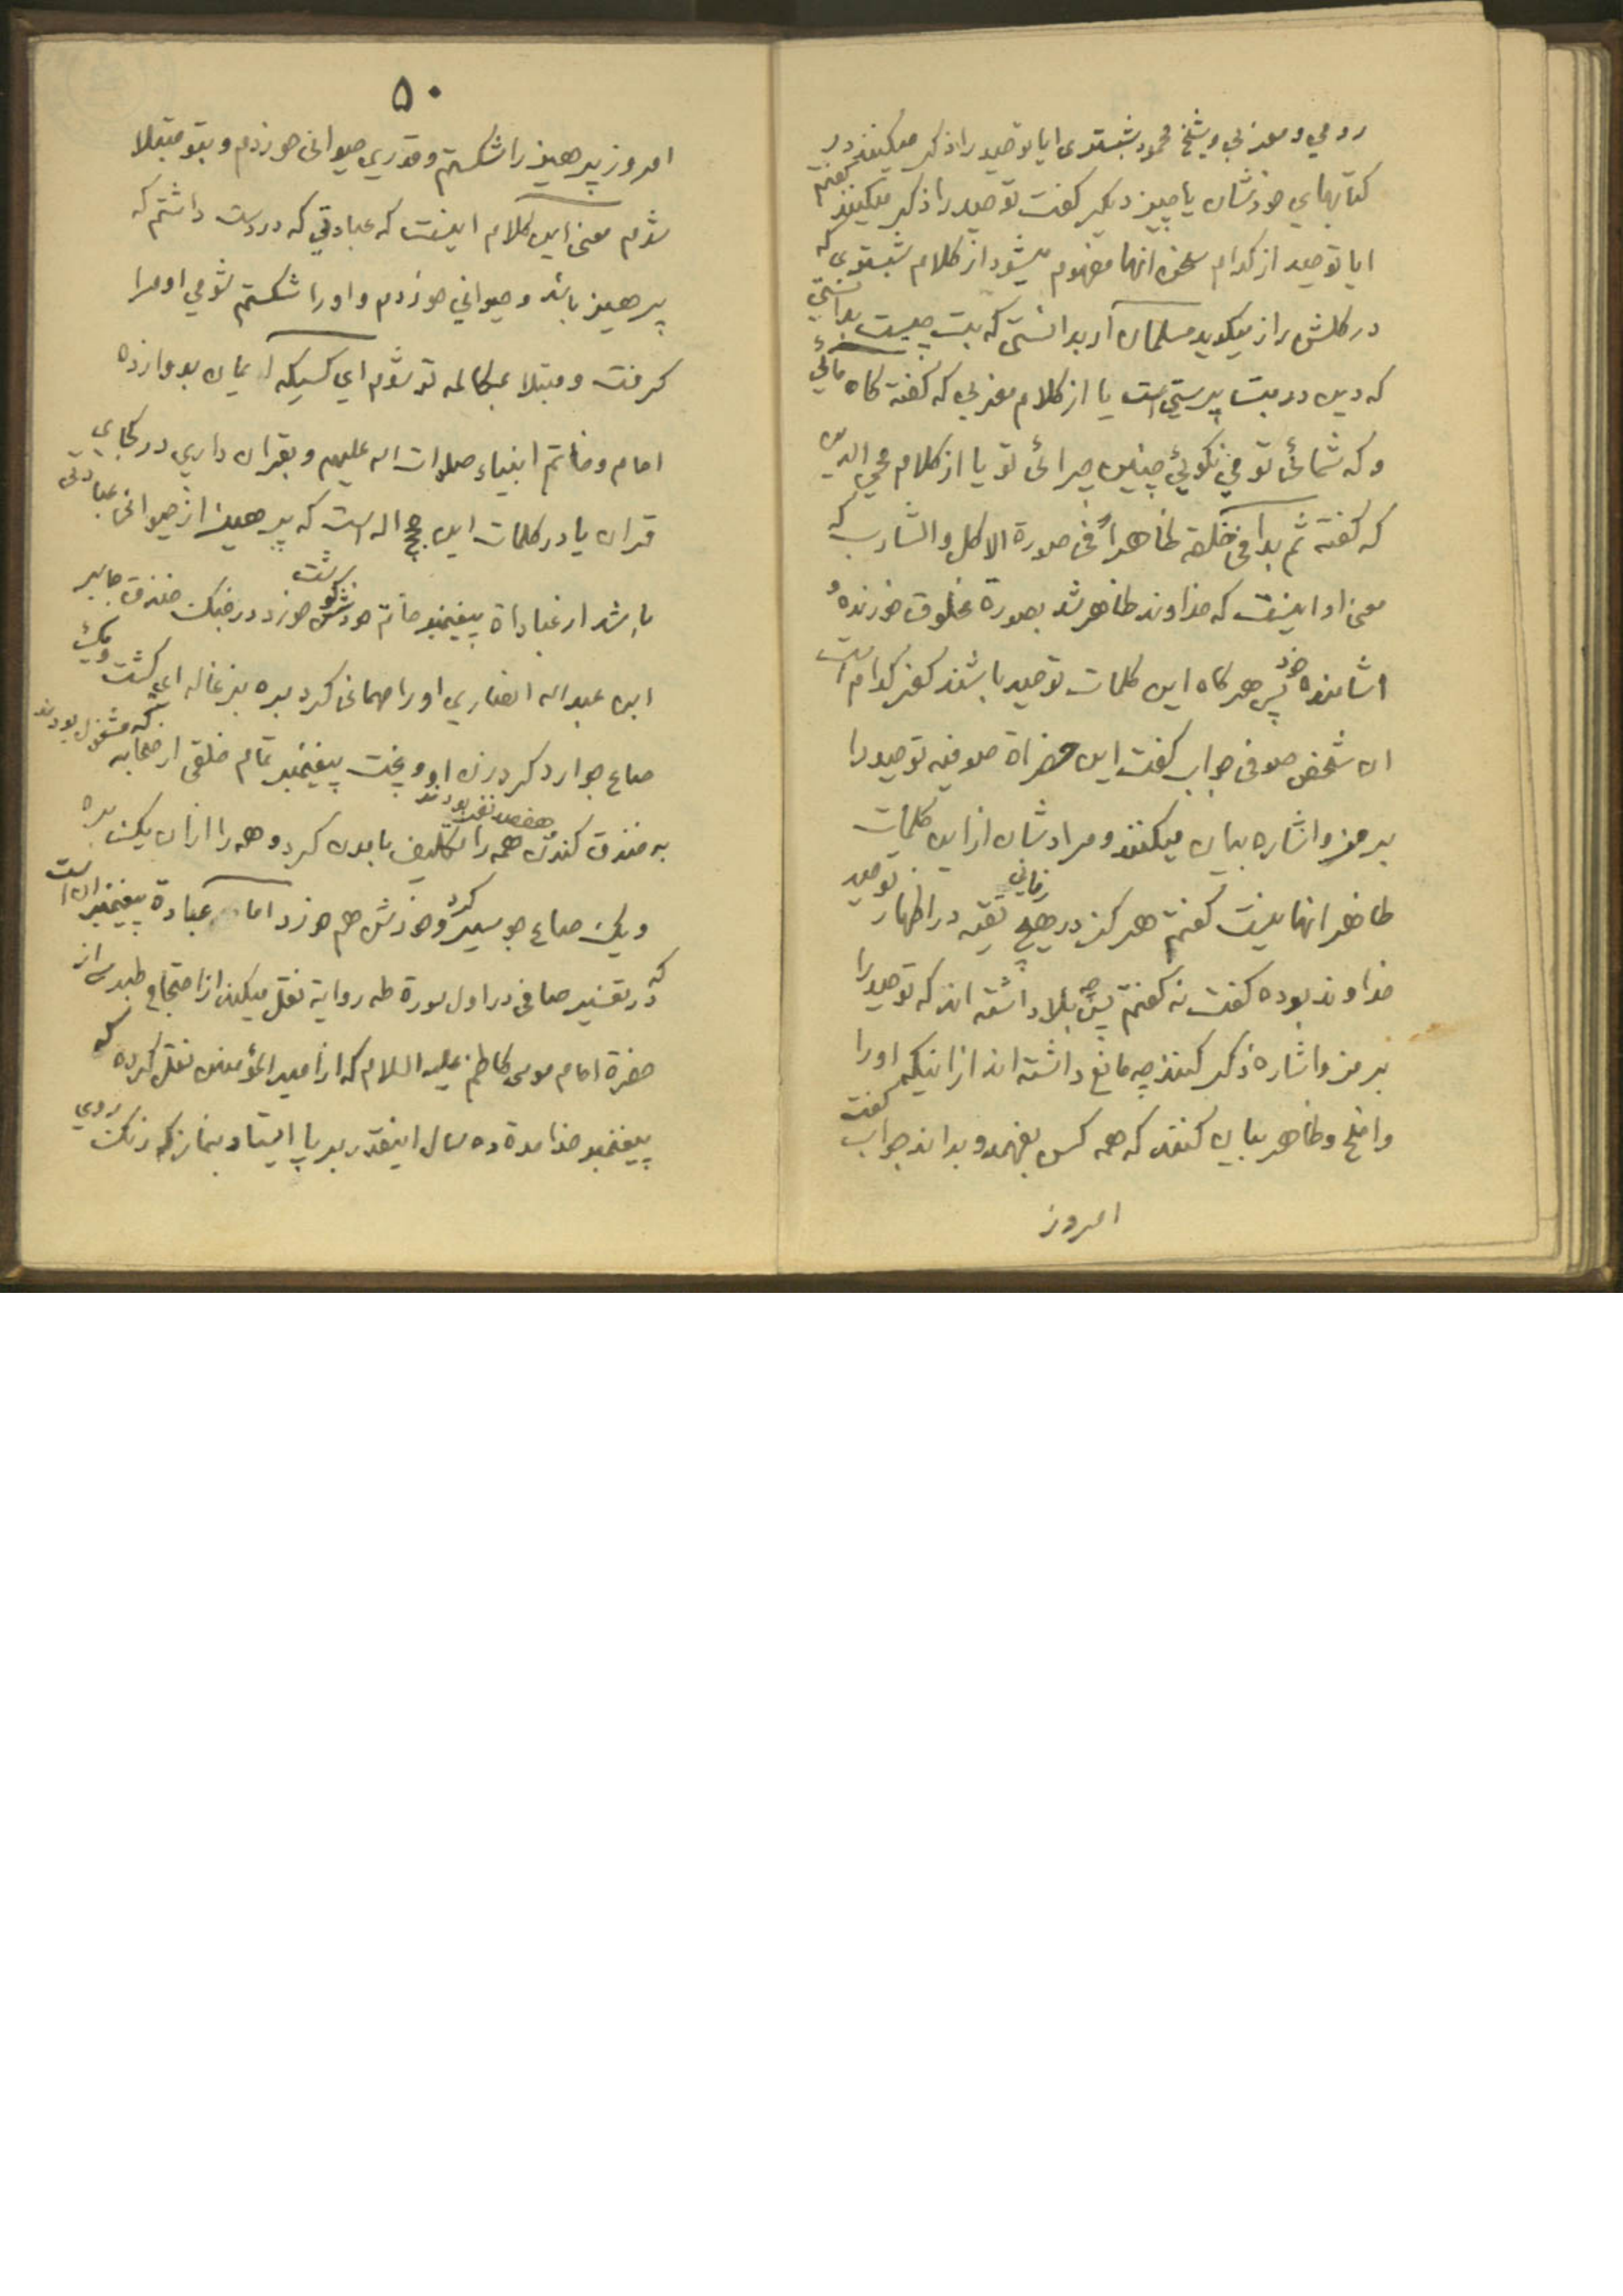 رومي و مغربي و شيخ محمود شبستری ایا توحید را ذکر میکنند در
کتابهاي خودشان یا چیز دیکر کفت توحید را ذکر میکنند کفتم
ایا توحید از کدام سخن انها مفهوم میشود از کلام شبستری که
در کلشن راز میکوید مسلمان ار بدانستی که بت چیست بدانستي
که دین در بت پرستي است یا از کلام مغربي که کفته کاه مائي
و که شمائی تو مي نکوئي چنین چرائی تو یا از کلام محي الدین
که کفته ثم بدا في خلقه ظاهراً في صورة الاکل والشارب که
معنی او اینست که خداوند ظاهر شد بصورة مخلوق خورنده و
اشامنده خود پس هر کاه این کلمات توحید باشند کفر کدام است
ان شخص صوفی جواب کفت این حضراة صوفیه توحید را
برمز و اشاره بیان میکنند و مرادشان از این کلمات
ظاهر انها نیست کفتم هرکز در هیچ زماني تقیه در اظهار توحید
خداوند بوده کفت نه کفتم پس چه بلا داشته اند که توحید را
برمز و اشاره ذکر کنند چه مانع داشته اند از اینکه او را
واضح و ظاهر بیان کنند که همه کس بفهمد و بداند جواب کفت
امروز
۵۰
امروز پرهیز را شکستم و قدري حیوانی خوردم و بتو مبتلا
شدم معنی این کلام اینست که عبادتي که در دست داشتم که
پرهیز باشد و حیواني خوردم و او را شکستم شومي او مرا
کرفت و مبتلا بمکالمه تو شدم اي کسیکه ایمان بدوازده
امام و خاتم انبیاء صلوات اله علیهم و بقران داري در کجاي
قران یا در کلمات این حجج اله است که پرهیز از حیوانی عبادتی
باشد از عباداة پیغمبر خاتم خودش کوشت خورد در جنک خندق جابر
ابن عبداله انصاري او را مهمانی کرد بره بزغاله اي کشت و یک
صاع جو ارد کرد زن او و پخت پیغمبر تمام خلقی از صحابه که مشغول بودند
به خندق کندن هفصد نفر بودند همه را تکلیف بامدن کرد و همه را از ان یک بره
و یک صاع جو سیر کرد و خودش هم خورد اما عبادة پیغمبر ان است
که در تفسیر صافی در اول سورة طه روایة نقل میکند از احتجاج طبرسی از
حضرة امام موسی کاظم علیه السلام که از امیر المؤمنین نقل کرده که
پیغمبر خدا مدة ده سال اینقدر بر پا ایستاد بنماز که رنک روي